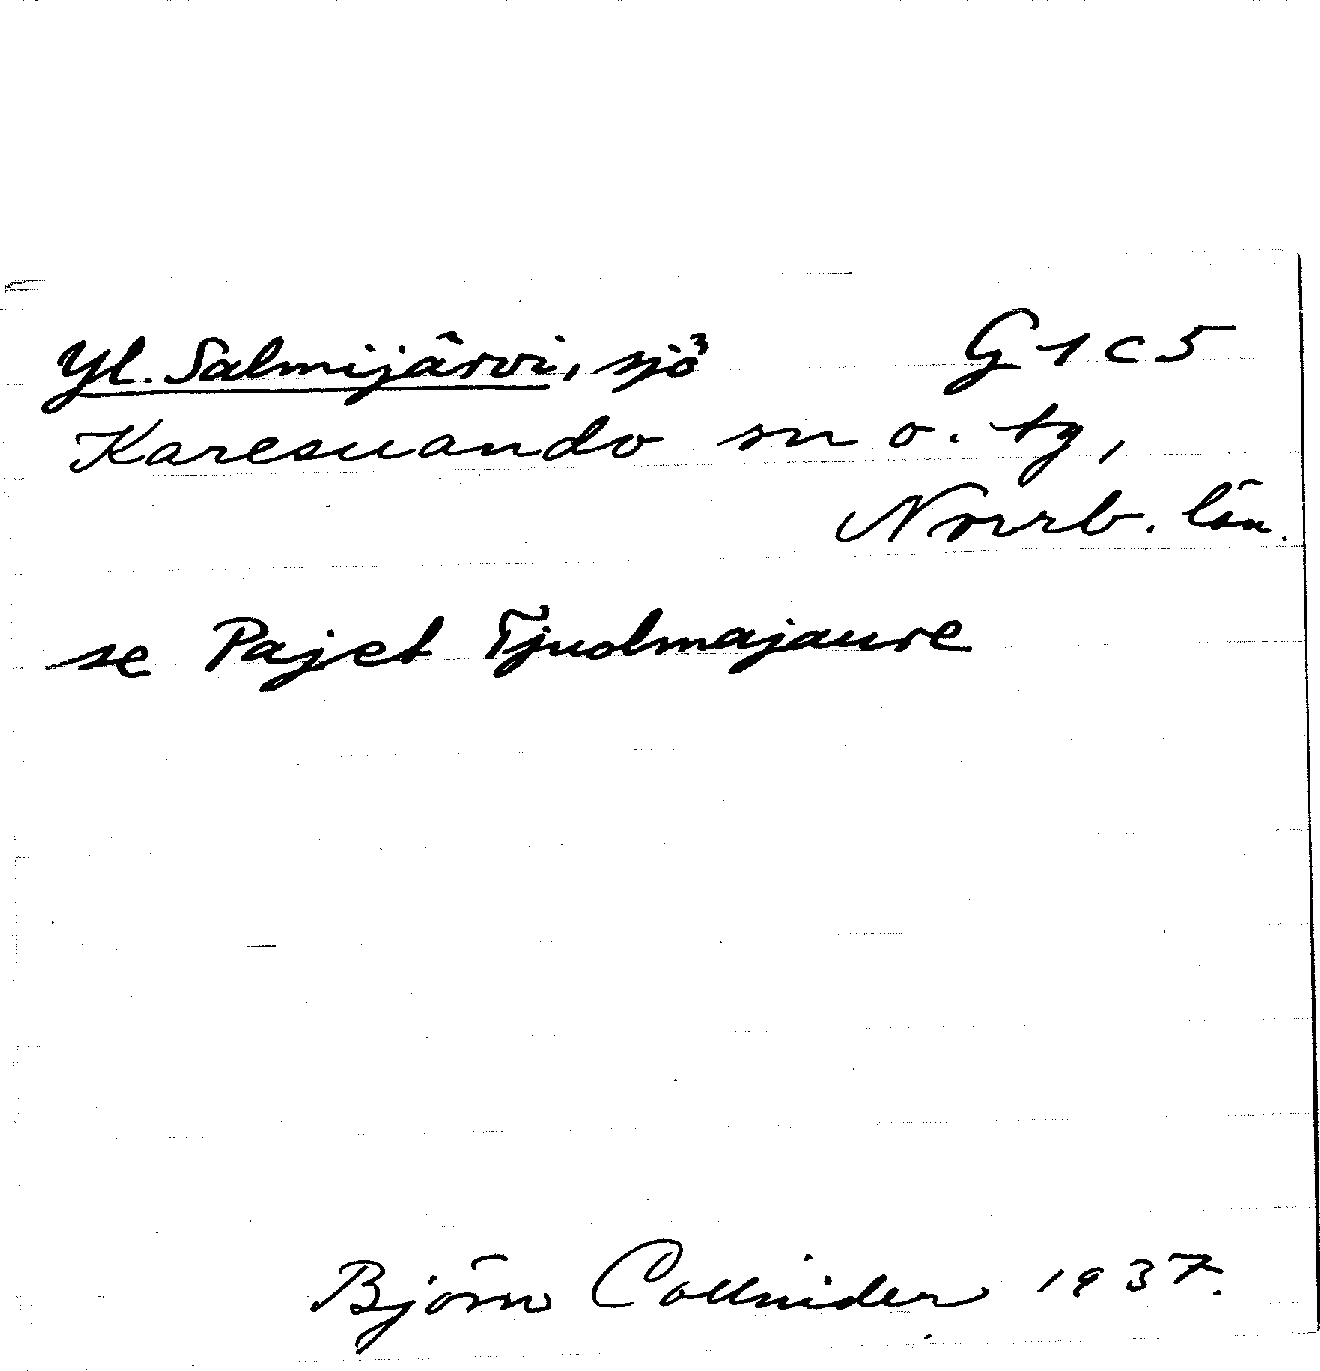 Yl. Salmijärvi, sjö G 1 c 5
Karesuando sn o. tg,
Norrb. län.
se Pajet Tjuolmajaure
Björn Collinder 1937.